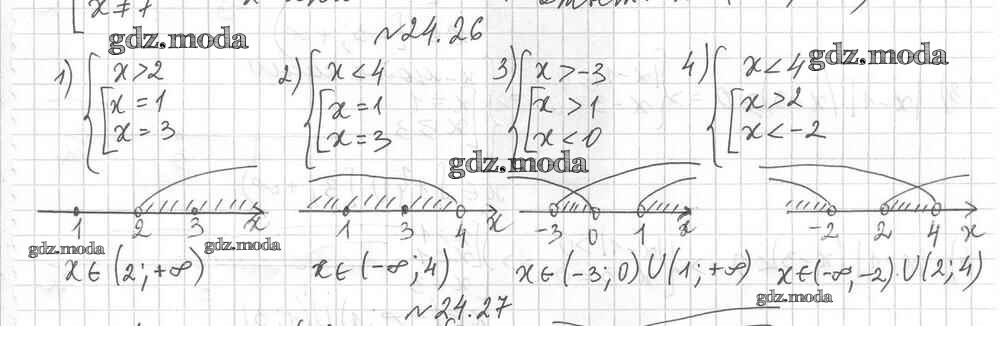 x ≠ 7
№24.26
gdz.moda
gdz.moda
1) { x > 2
[ x = 1
x = 3
2) { x < 4
[ x = 1
x = 3
3) { x > -3
[ x > 1
x < 0
4) { x < 4
[ x > 2
x < -2
gdz.moda
1 2 3 x
1 3 4 x
-3 0 1 x
-2 2 4 x
gdz.moda
gdz.moda
x ∈ (2; +∞)
x ∈ (-∞; 4)
x ∈ (-3; 0) ∪ (1; +∞)
x ∈ (-∞, -2) ∪ (2; 4)
gdz.moda
№24.27